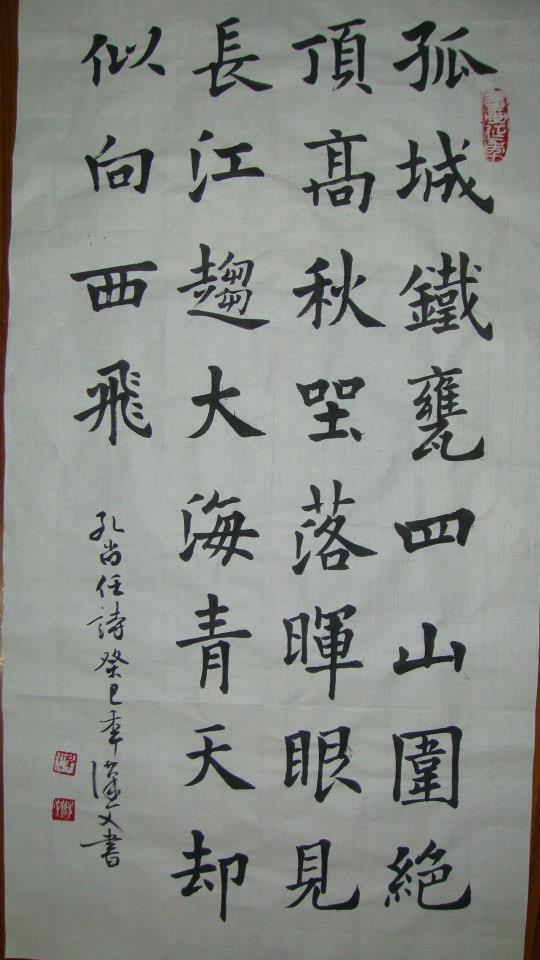 孤城鐵甕四山圍絶
頂髙秋坐落暉眼見
長江趨大海青天却
似向西飛
孔尚任詩癸巳年漢文書